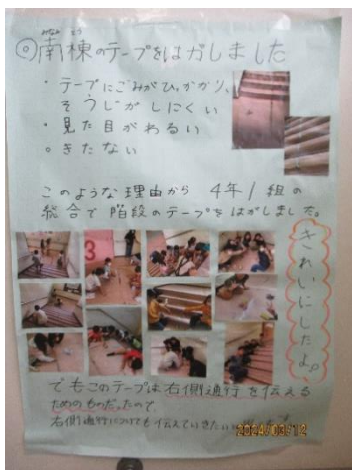 みなみ とう
◎南棟のテープをはがしました
・テープにごみがひっかかり、
そうじがしにくい
・見た目がわるい
・きたない
このような理由から 4年1組の
総合で階段のテープをはがしました。
3
きれいにしたよ。
でもこのテープは右側通行を伝える
ためのものだったので、
右側通行についても伝えていきたい
2024/03/12